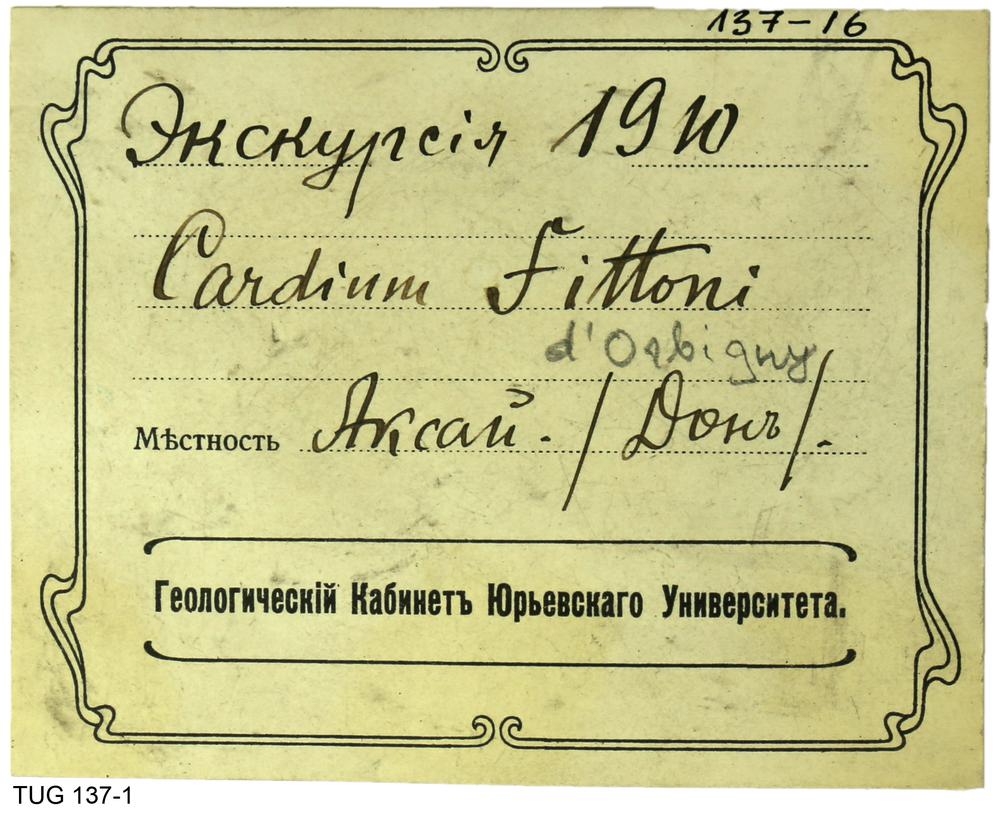 137-16
Экскурсія 1910
Cardium Fittoni
d'Orbigny
Мѣстность Аксай. /Донъ/.
Геологическій Кабинетъ Юрьевскаго Университета.
TUG 137-1